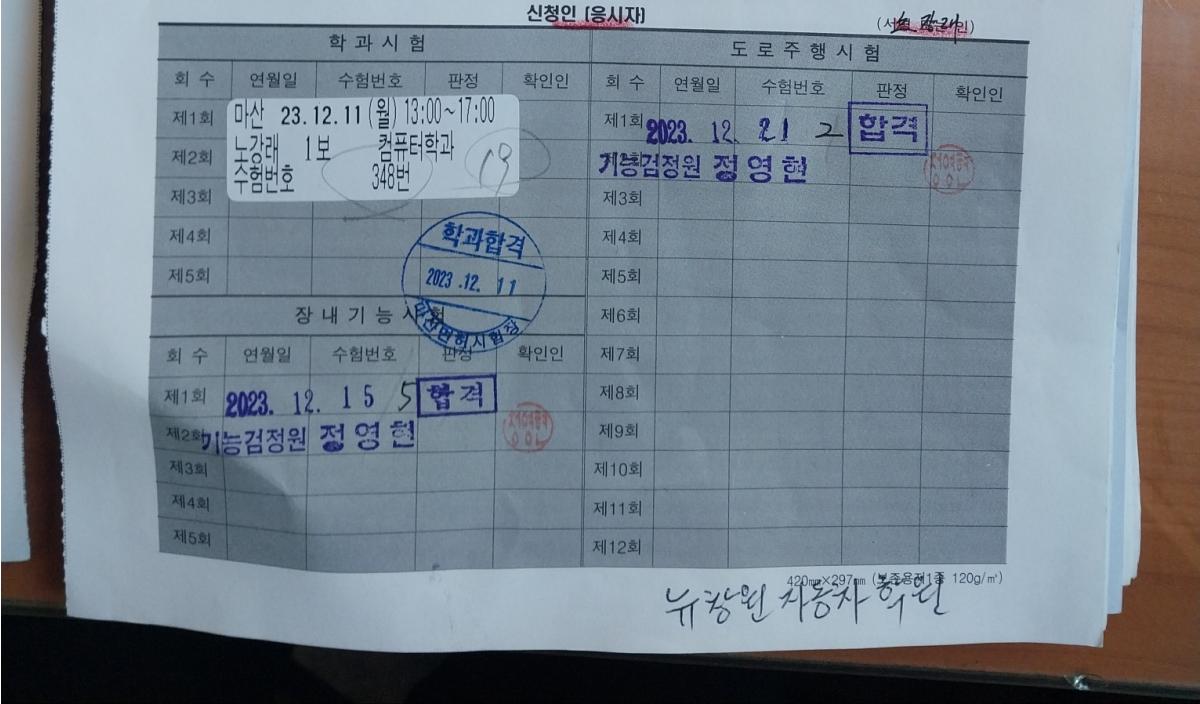 신청인 [응시자]
학과시험
회 수 연월일 수험번호 판정 확인인
제1회
제2회
제3회
제4회
제5회
마산 23.12.11(월) 13:00~17:00
노강래 1보 컴퓨터학과
수험번호 348번
19
학과합격
2023.12. 11
마산면허시험장
장내기능시험
회 수 연월일 수험번호 판정 확인인
제1회 2023. 12. 15 5 합격
제2회 기능검정원 정영현
제3회
제4회
제5회
도로주행시험
회 수 연월일 수험번호 판정 확인인
제1회 2023. 12. 21 2 합격
기능검정원 정영현
제3회
제4회
제5회
제6회
제7회
제8회
제9회
제10회
제11회
제12회
420㎜×297㎜ (보존용지1종 120g/㎡)
뉴창원 자동차 학원